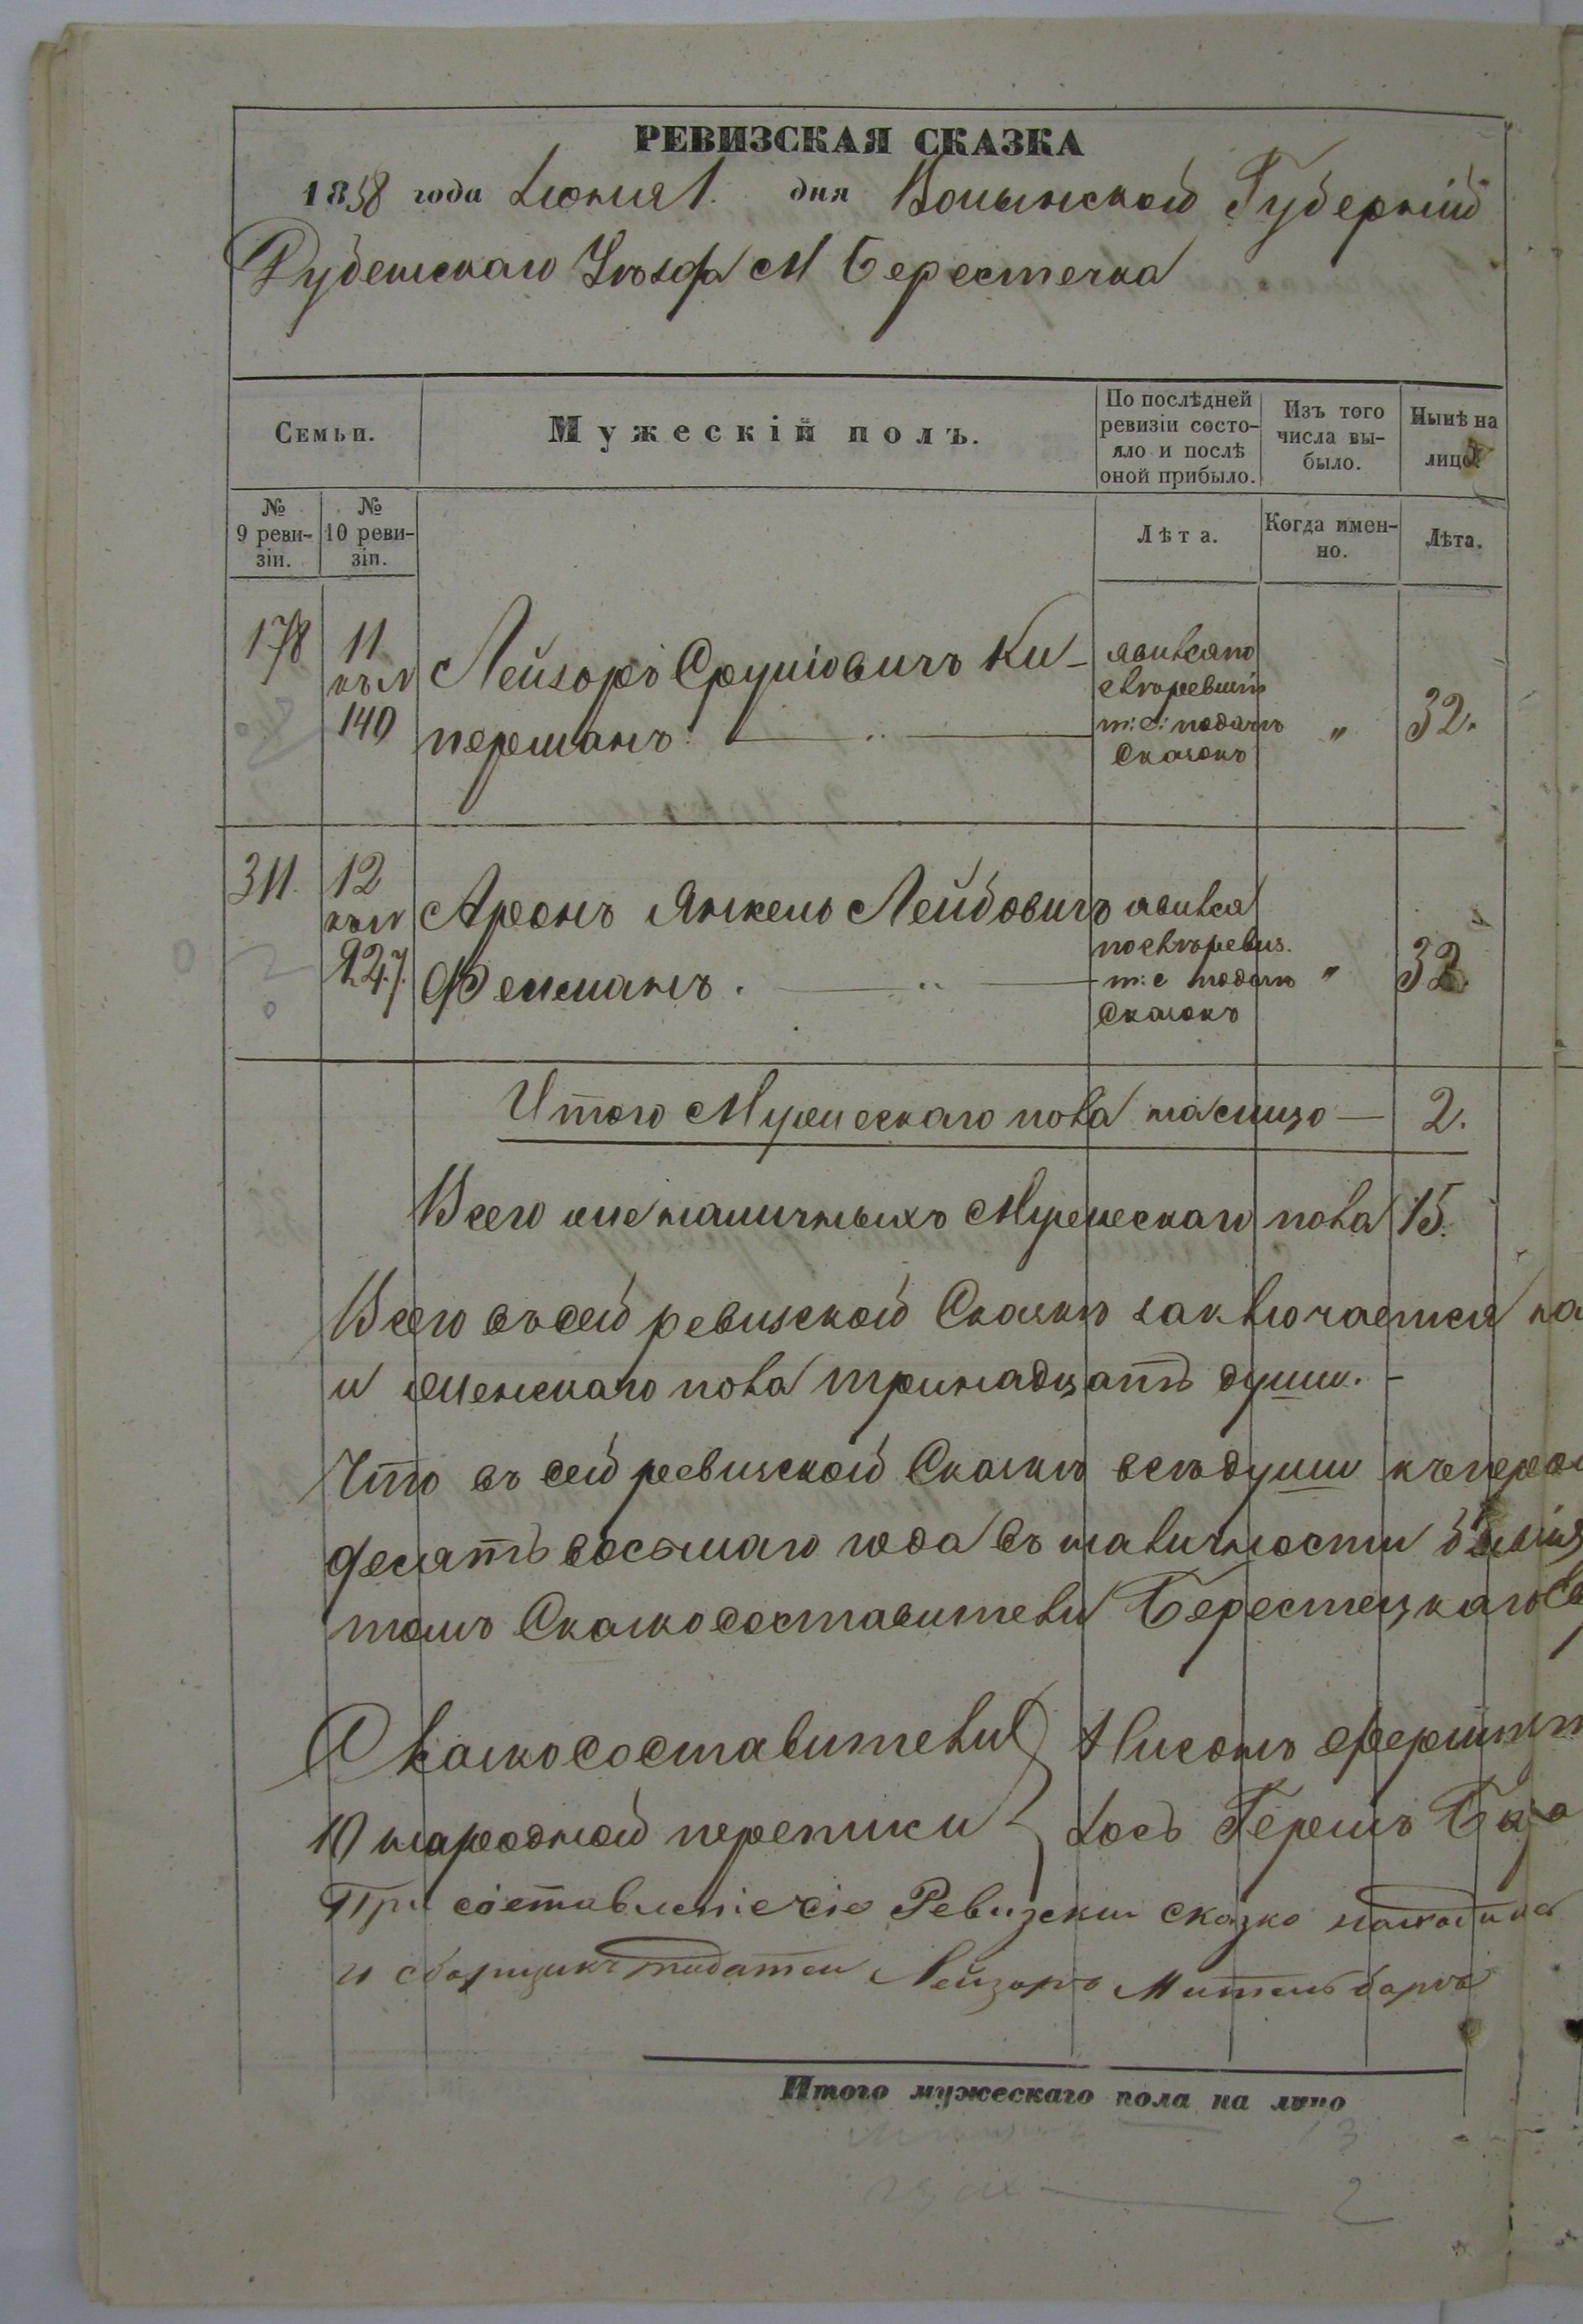 РЕВИЗСКАЯ СКАЗКА
1858 года Іюня 1. дня Волынской Губерніи
Дубенскаго Уѣзда М Берестечка
Семьи.
Мужескій полъ.
По послѣдней ревизіи состо-
яло и послѣ оной прибыло.
Изъ того числа вы-
было.
Нынѣ на лицо.
№ 9 реви-
зіи.
№ 10 реви-
зіи.
Лѣта.
Когда имен-
но.
Лѣта.
178 11 Лейзоръ Сруліовичъ Ки- явился по
къ N
140 перманъ. т: с: подачѣ " 32.
Сказокъ
311. 12 Аронъ Янкель Лейбовичъ явился
къ N
по ревиз.
Фельманъ. т: с подачѣ " 32
Сказокъ
Итого Мужескаго пола налицо — 2.
Всего же наличныхъ Мужескаго пола 15.
Всего въ сей ревизской Сказкѣ заключается на
и женскаго пола тринадцать души. -
Что въ сей ревизской Сказкѣ всѣ души
десять восьмаго года въ наличности
томъ Сказкосоставители Берестецкаго
Сказкосоставители Нисонъ
10 народной переписи Іось Гершъ
При составленіе сіе Ревизски сказко находился
и сборщикъ податеи Лейзоръ Мительбаръ
Итого мужескаго пола на лицо
13
2